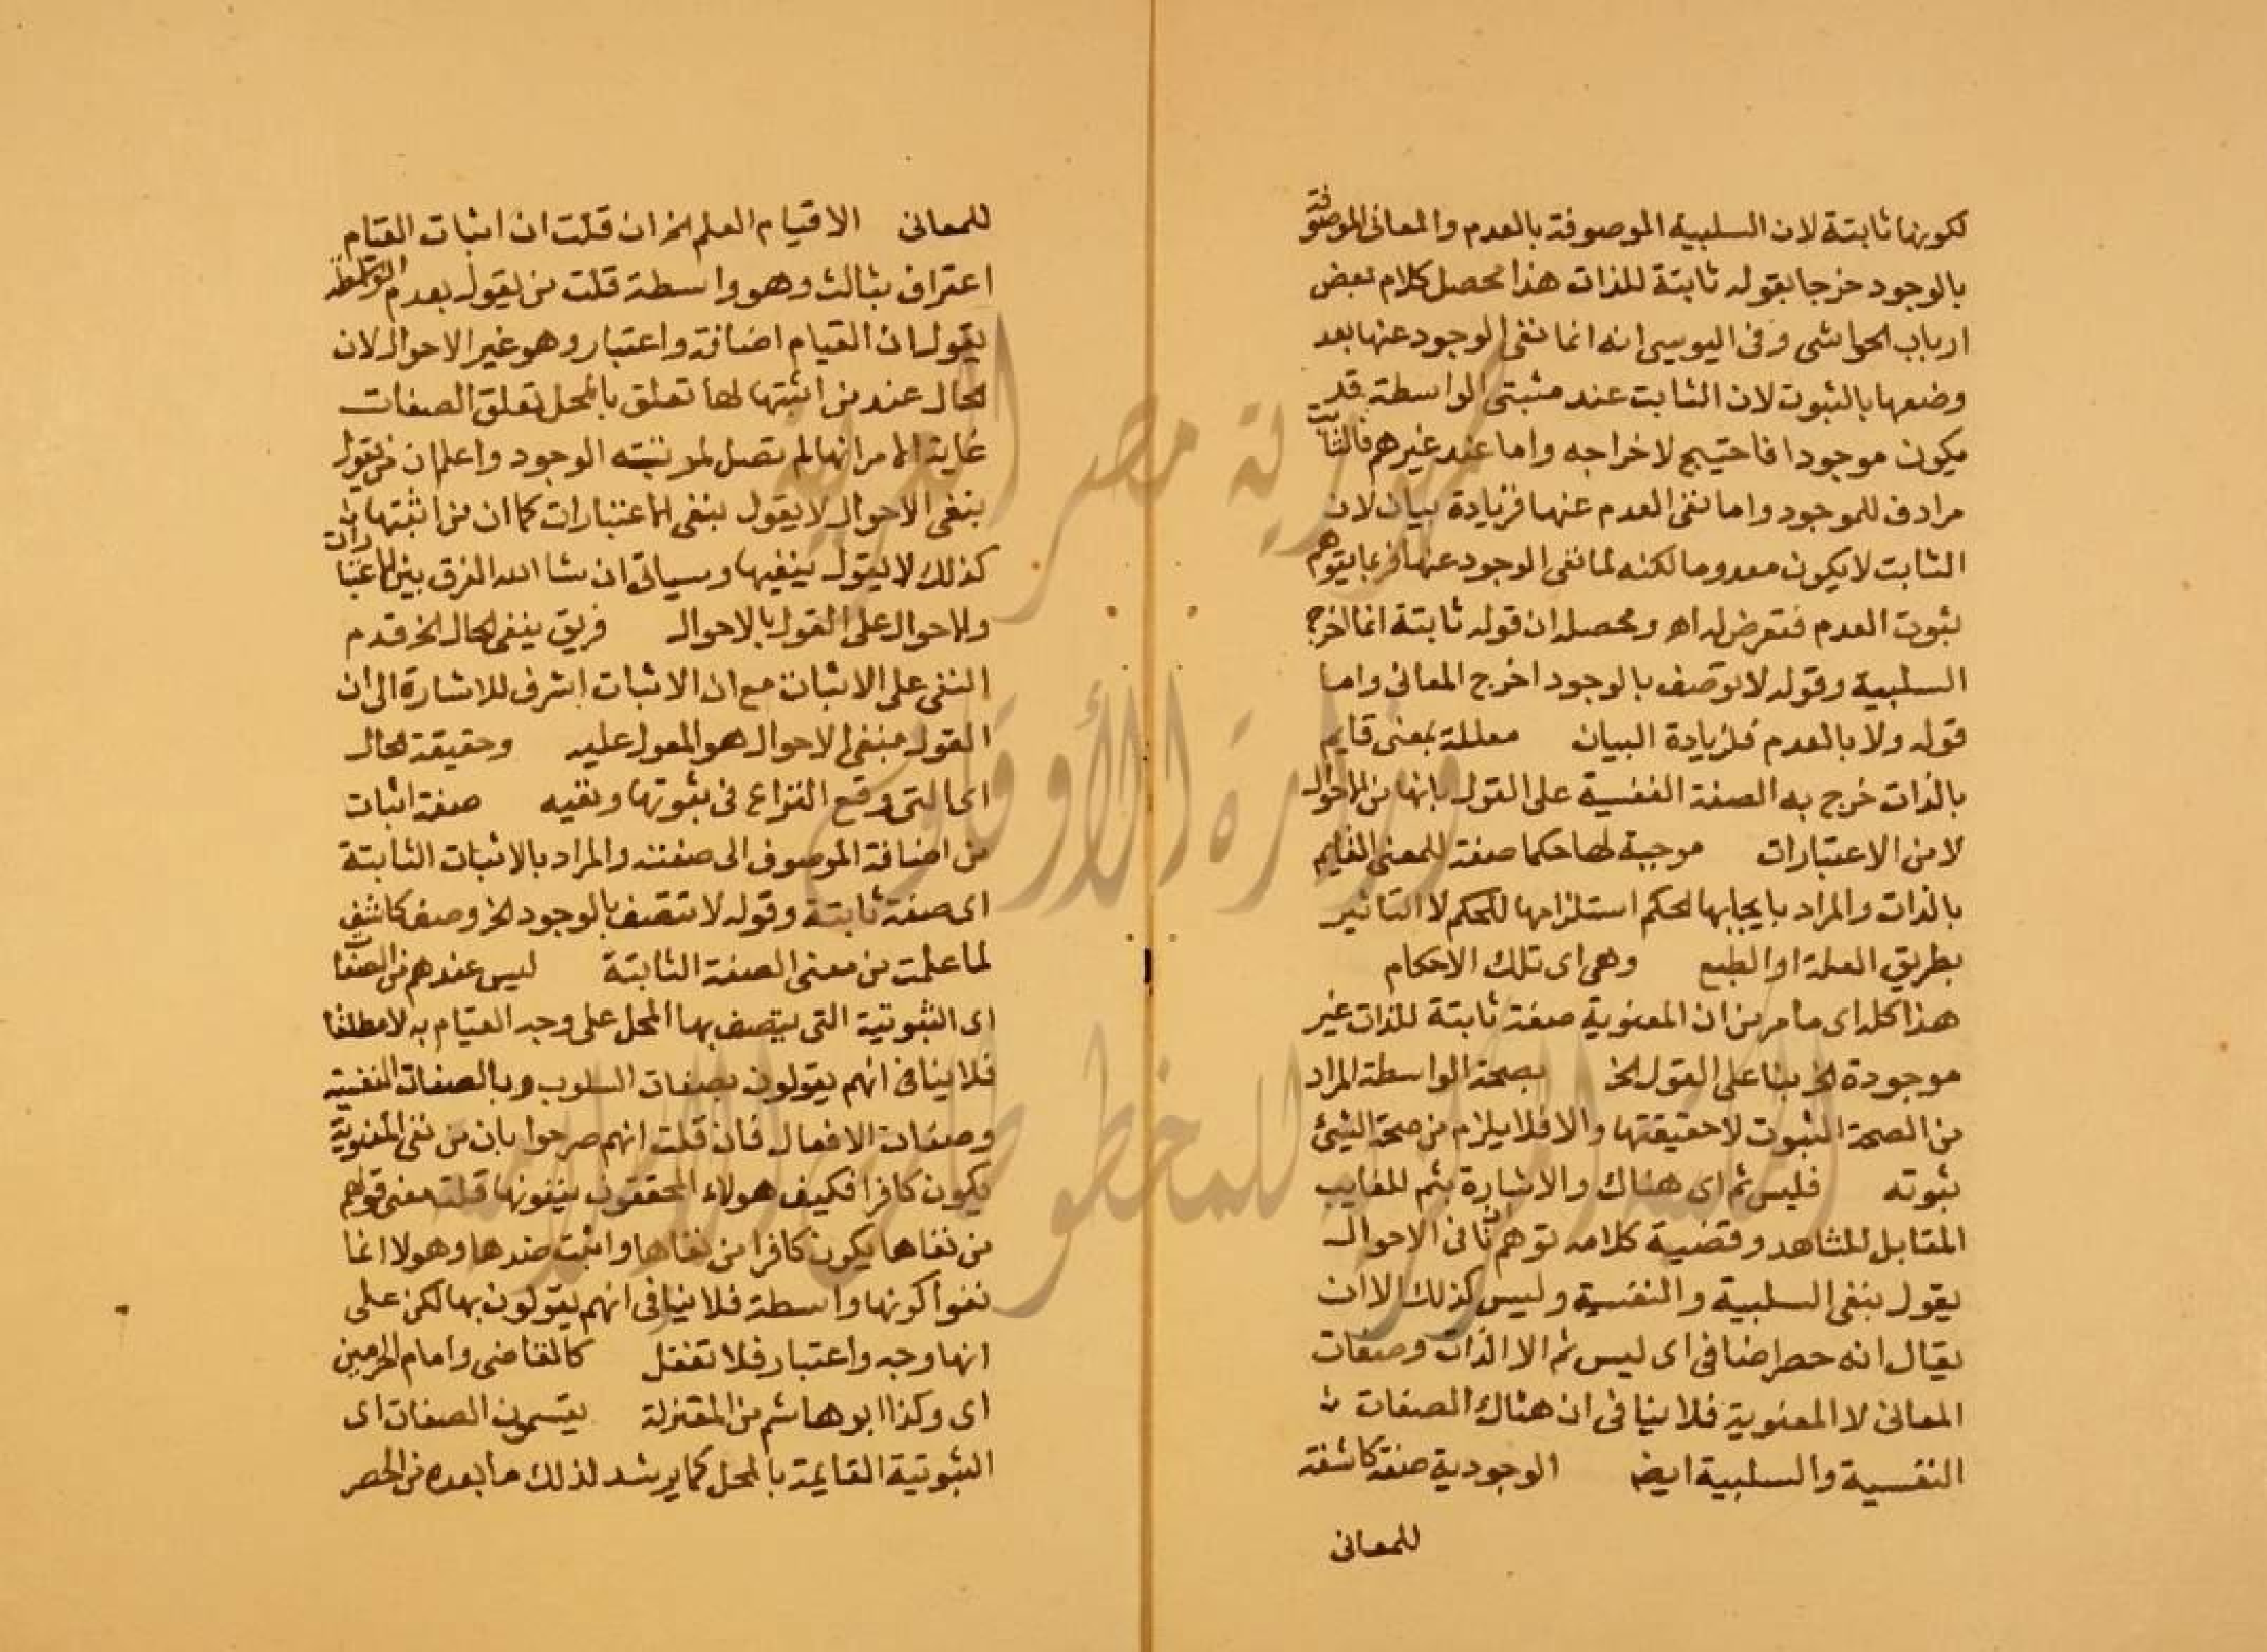 لكونها ثابتة لان السلبية الموصوفة بالعدم والمعانى الموصوفة
بالوجود خرجا بقوله ثابتة للذات هذا محصل كلام بعض
ارباب الحواشى وفى اليوسى انه انما نفى الوجود عنها بعد
وصفها بالثبوت لان الثابت عند مثبتى الواسطة قد
يكون موجودا فاحتيج لاخراجه واما عند غيرهم فالثابت
مرادف للموجود واما نفى العدم عنها فزيادة بيان لان
الثابت لا يكون معدوما لكنه لما نفى الوجود عنها فربما يتوهم
ثبوت العدم فتعرض له اهـ ومحصله ان قوله ثابتة انما اخرج
السلبية وقوله لا توصف بالوجود اخرج المعانى واما
قوله ولا بالعدم فلزيادة البيان معللة بمعنى قايم
بالذات خرج به الصفة النفسية على القول بانها من الاحوال
لا من الاعتبارات موجبة لها حكما صفة للمعنى القايم
بالذات والمراد بايجابها لحكم استلزامها للحكم لا التاثير
بطريق العلة او الطبع وهى اى تلك الاحكام
هذا كله اى ما مر من ان المعنوية صفة ثابتة للذات غير
موجودة الخ بنا على القول الخ بصحة الواسطة المراد
من الصحة الثبوت لا حقيقتها والا فلا يلزم من صحة الشئ
ثبوته فليس ثم اى هناك والاشارة بثم للغايب
المقابل للمشاهد وقضية كلامه توهم ان نافى الاحوال
يقول بنفى السلبية والنفسية وليس كذلك الا ان
يقال انه حصر اضافى اى ليس ثم الا الذات وصفات
المعانى لا المعنوية فلا ينافى ان هناك الصفات
النفسية والسلبية ايضا الوجودية صفة كاشفة
للمعانى
للمعانى الا قيام العلم الخ ان قلت ان اثبات القيام
اعتراف بثالث وهو واسطة قلت من يقول بعدم الواسطة
يقول ان القيام اضافة واعتبار وهو غير الاحوال لان
الحال عند من اثبتها لها تعلق بالمحل تعلق الصفات
غاية الامر انها لم تصل لمرتبته الوجود واعلم ان من يقول
بنفى الاحوال لا يقول بنفى الاعتبارات كما ان من اثبتها
كذلك لا يقول بنفيها وسياتى ان شا الله الفرق بين الاعتبارات
والاحوال على القول بالاحوال فريق ينفى الحال الخ قدم
النفى على الاثبات مع ان الاثبات اشرف للاشارة الى ان
القول بنفى الاحوال هو المعول عليه وحقيقة الحال
اى التى وقع النزاع فى ثبوتها ونفيه صفة اثبات
من اضافة الموصوف الى صفته والمراد بالاثبات الثابتة
اى صفة ثابتة وقوله لا تتصف بالوجود الخ وصف كاشف
لما علمت من معنى الصفة الثابتة ليس عندهم من الصفات
اى الثبوتية التى يتصف بها المحل على وجه القيام به لا مطلقا
فلا ينافى انهم يقولون بصفات السلوب وبالصفات النفسية
وصفات الافعال فان قلت انهم صرحوا بان من نفى المعنوية
يكون كافرا فكيف هولاء المحققون ينفونها قلت معنى قولهم
من نفاها يكون كافرا من نفاها واثبت ضدها وهولا انما
نفوا كونها واسطة فلا ينافى انهم يقولون بها لكن على
انها وجه واعتبار فلا تغفل كالقاضى وامام الحرمين
اى وكذا ابو هاشم من المعتزلة يقسمون الصفات اى
الثبوتية القايمة بالمحل كما يرشد لذلك ما بعده من الحصر
جمهورية مصر العربية
وزارة الأوقاف